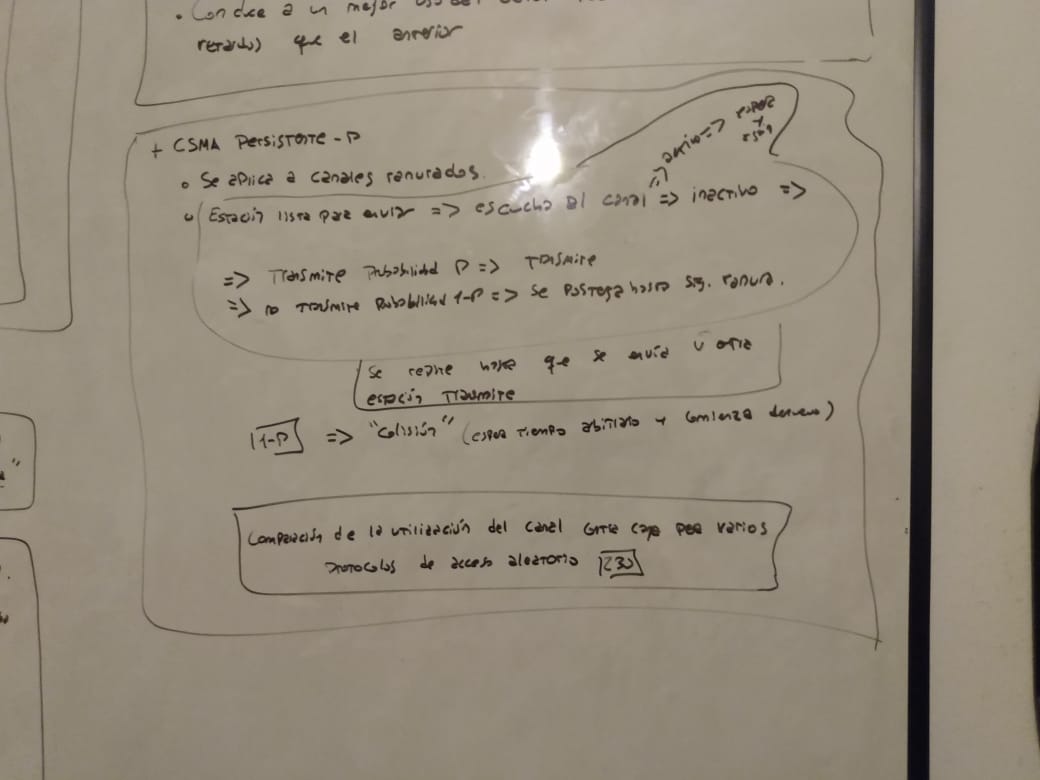 • Conduce a un mejor uso del canal
retardo) que el anterior
+ CSMA Persistente - P
• Se aplica a canales ranurados.
• Estación lista para enviar => escucha el canal => inactivo =>
=> activo =>
=> Transmite Probabilidad P => Transmite
=> no transmite Probabilidad 1-P => se posterga hasta sig. ranura.
Se repite hasta que se envía u otra
estación transmite
1-P => "colisión" (espera tiempo arbitrario y comienza de nuevo)
Comparación de la utilización del canal contra carga para varios
protocolos de acceso aleatorio 230